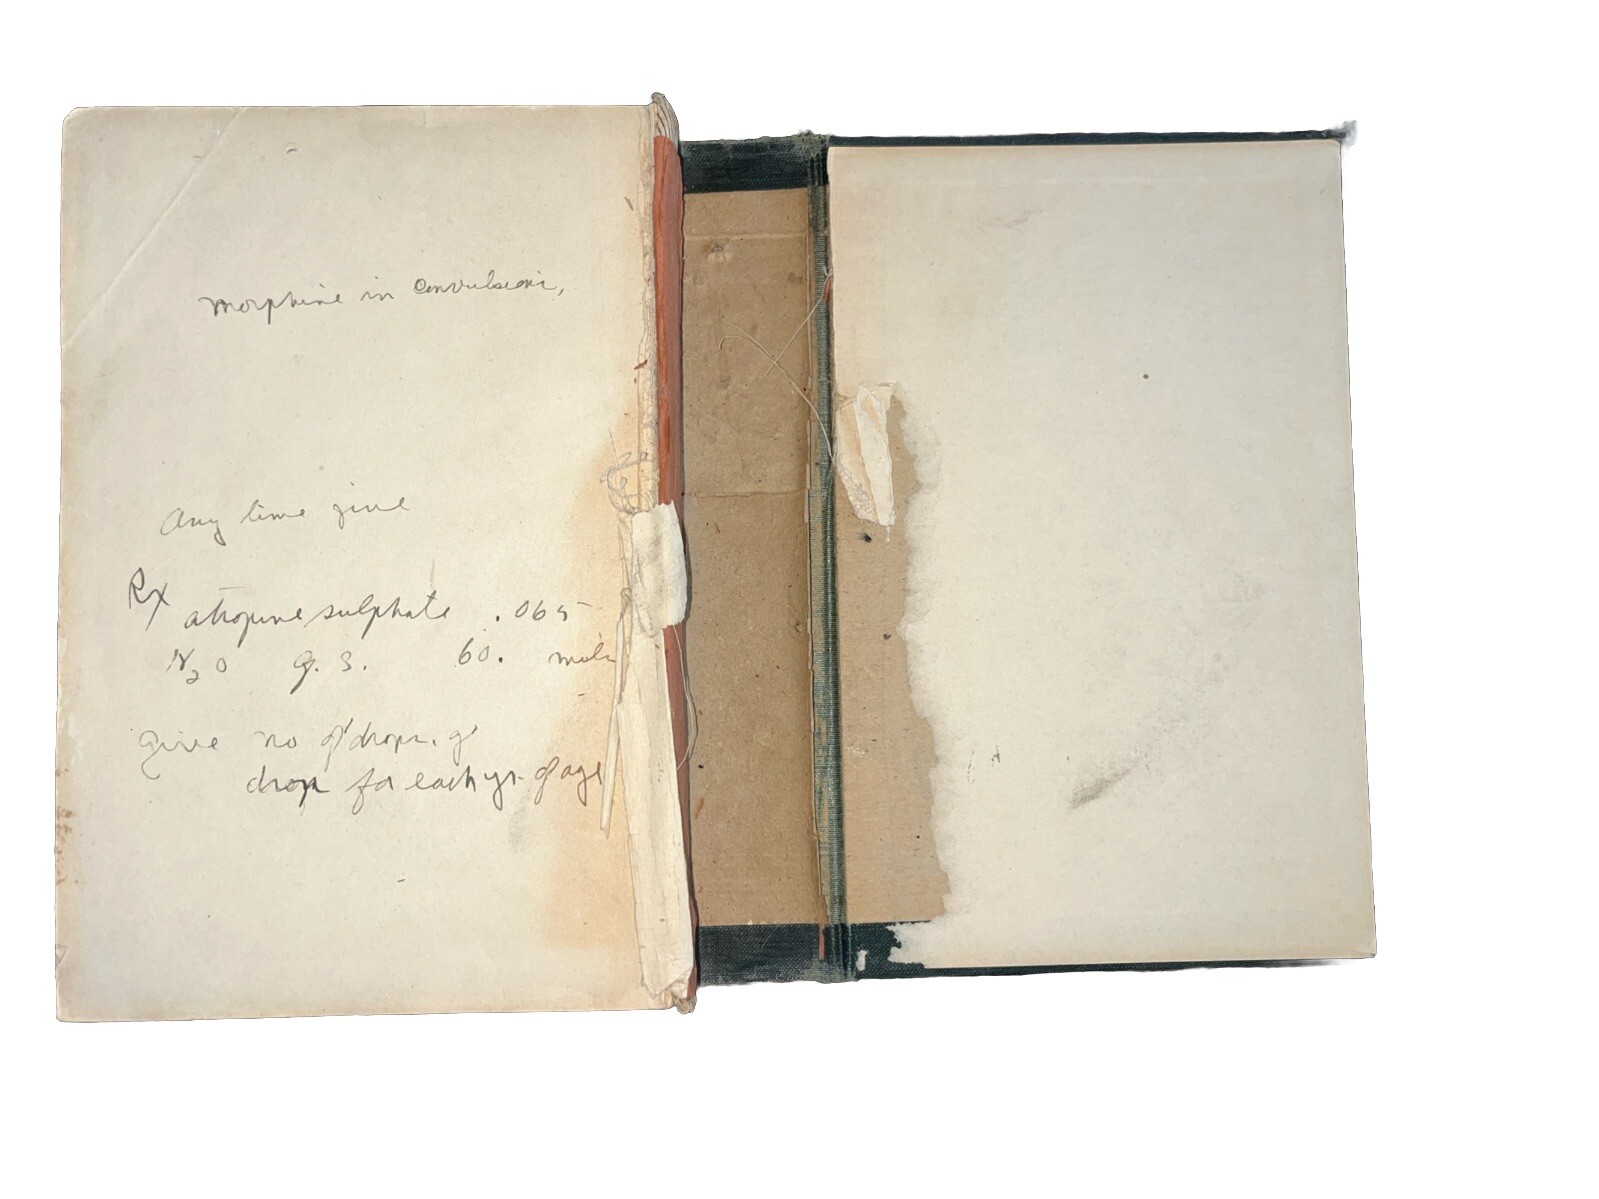 Morphine in Convulsions,
Any time give
Rx
atropine sulphate .065
H2O q. s. 60. mils
Give no of drops. 
drop for each yr. of age